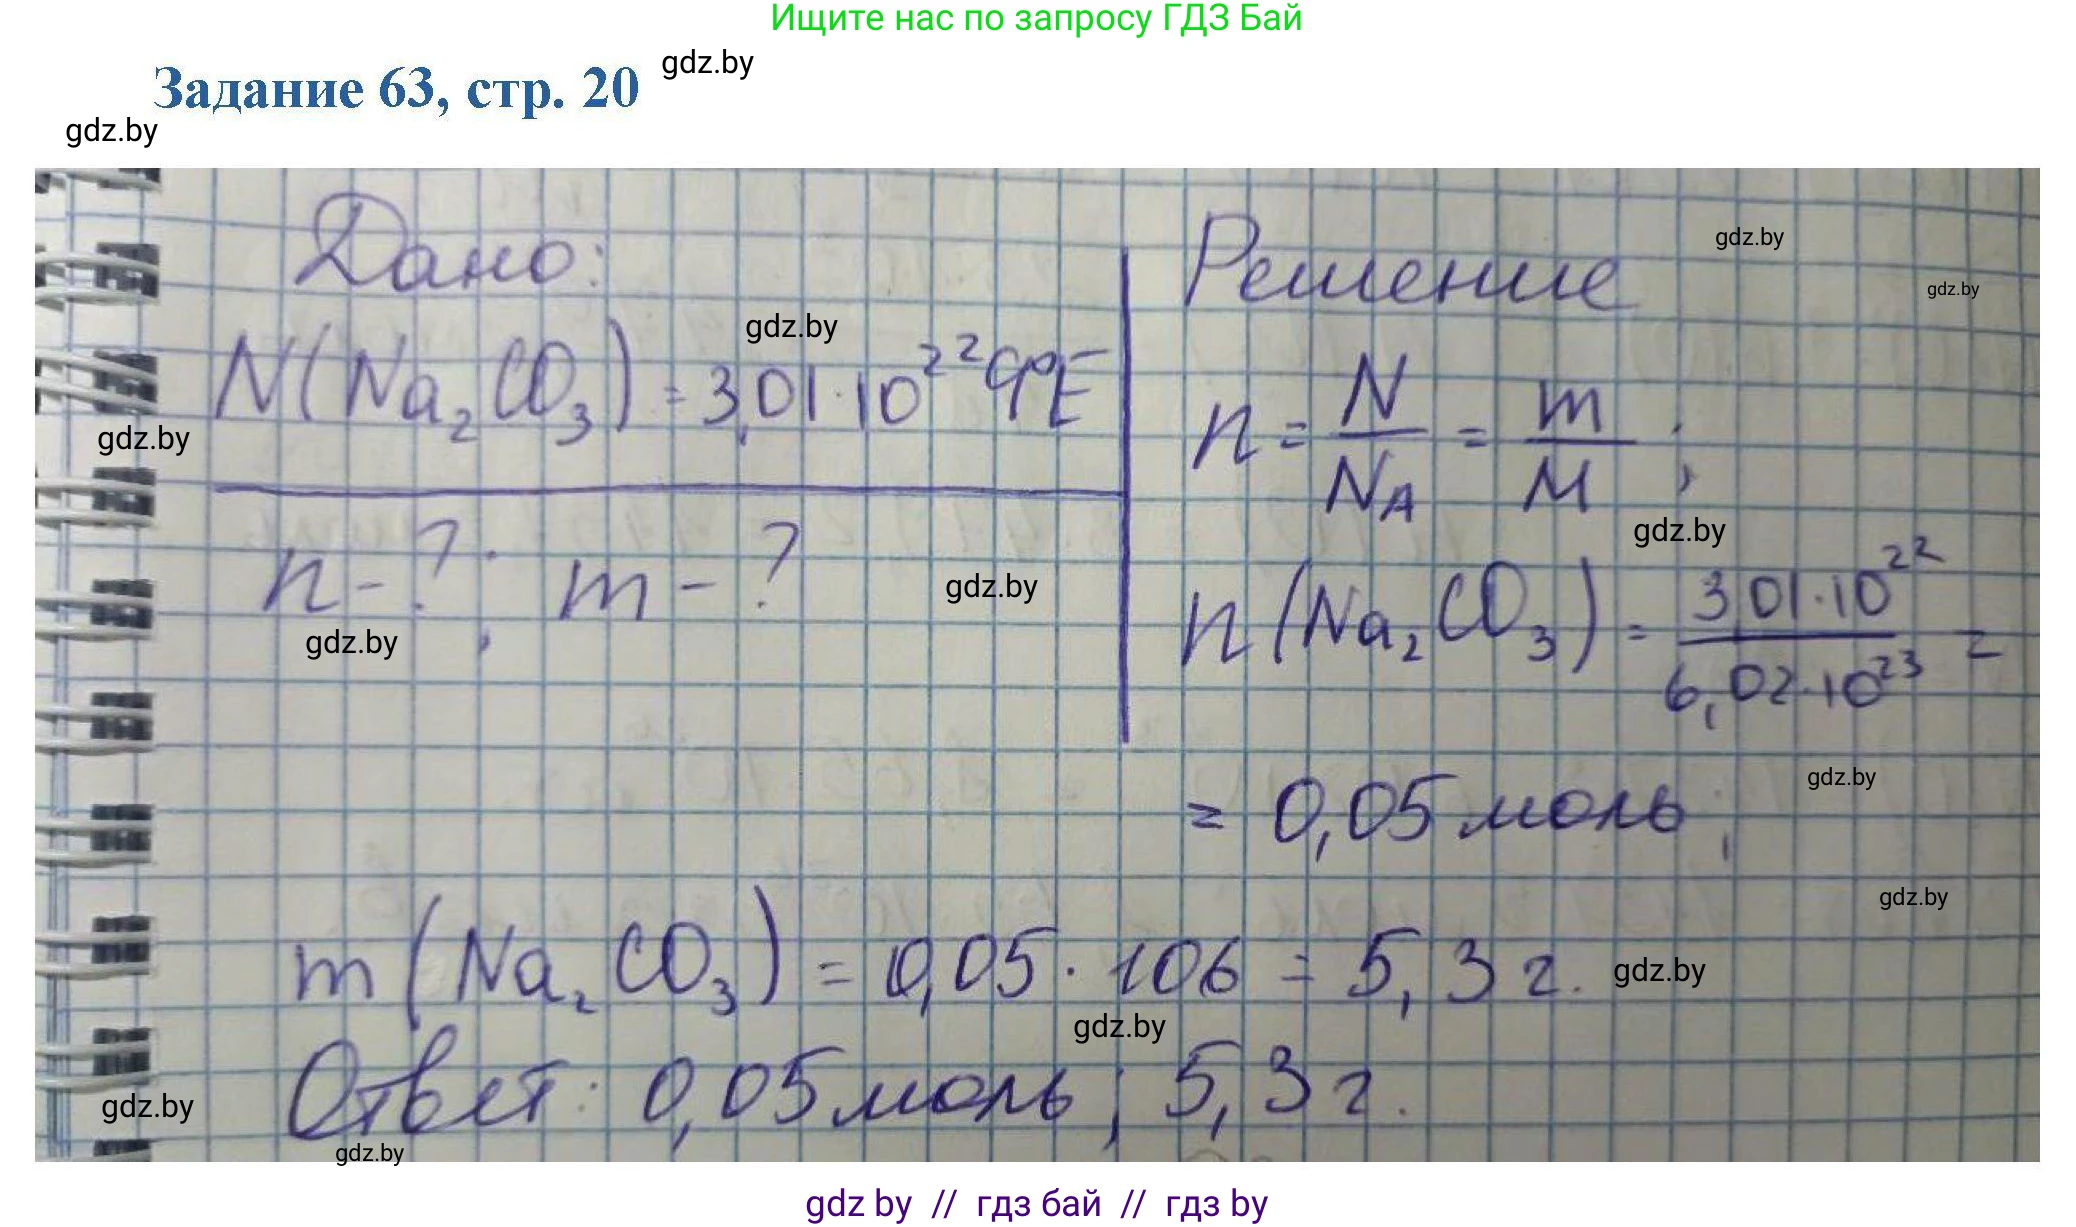 Ищите нас по запросу ГДЗ Бай
Задание 63, стр. 20
gdz.by
gdz.by
Дано:
N(Na₂CO₃) = 3,01·10²² ФЕ
n - ?; m - ?
Решение
n = N/N_A = m/M ;
n(Na₂CO₃) = 3,01·10²²/6,02·10²³ =
= 0,05 моль;
m(Na₂CO₃) = 0,05 · 106 = 5,3 г.
Ответ: 0,05 моль; 5,3 г.
gdz.by
gdz.by
gdz.by
gdz.by
gdz.by
gdz.by
gdz.by
gdz.by
gdz.by
gdz.by
gdz.by
gdz.by
gdz.by
gdz by // гдз бай // гдз by